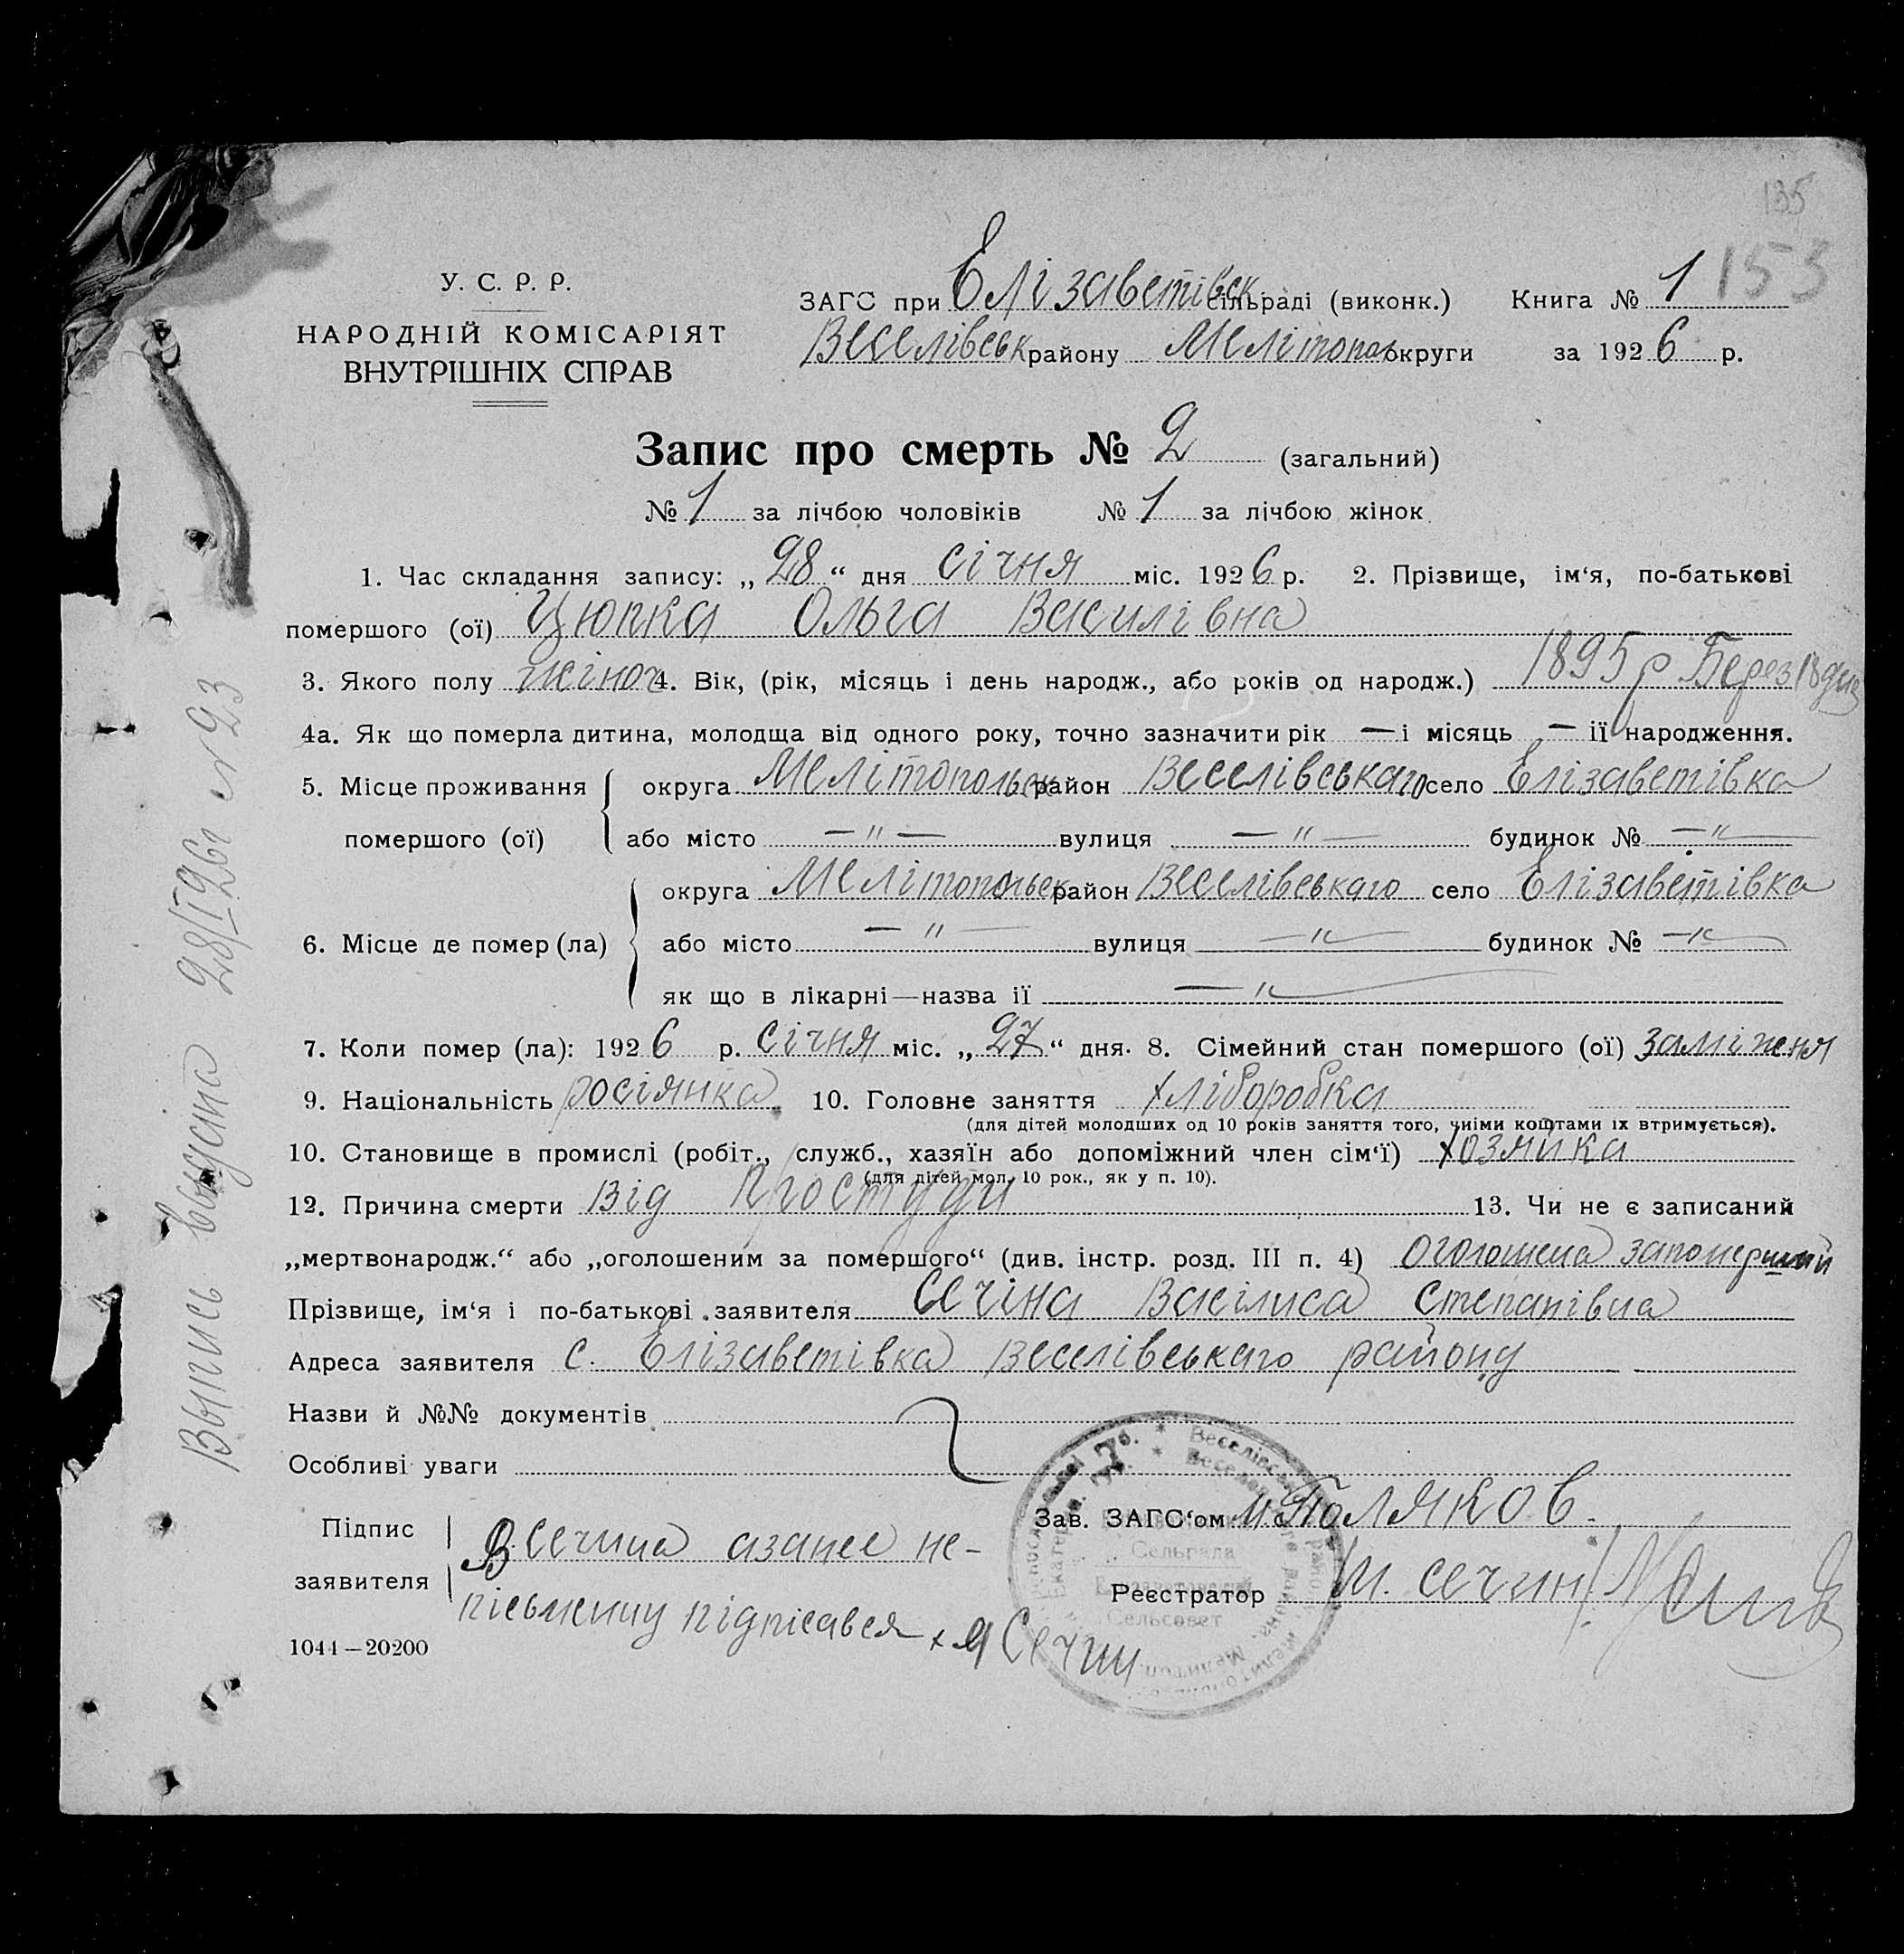 135
153
У. С. Р. Р.
НАРОДНІЙ КОМІСАРІЯТ
ВНУТРІШНІХ СПРАВ
ЗАГС при Елізаветівск сільраді (виконк.) Книга № 1
Веселівськ району Мелітополь округи за 1926 р.
Запис про смерть № 2 (загальний)
№ 1 за лічбою чоловіків № 1 за лічбою жінок
1. Час складання запису: „28“ дня січня міс. 1926 р. 2. Прізвище, ім‘я, по-батькові
помершого (ої) Цюпка Ольга Василівна
3. Якого полу жіноч 4. Вік, (рік, місяць і день народж., або років од народж.) 1895 р Берез 18 дня
4а. Як що померла дитина, молодща від одного року, точно зазначити рік — і місяць — її народження.
5. Місце проживання округа Мелітопольск район Веселівськаго село Елізаветівка
помершого (ої) або місто — " — вулиця — " — будинок № — " —
округа Мелітопольск район Веселівськаго село Елізаветівка
6. Місце де помер (ла) або місто — " — вулиця — " — будинок № — " —
як що в лікарні—назва її — " —
7. Коли помер (ла): 1926 р. січня міс. „27“ дня. 8. Сімейний стан помершого (ої) заміжня
9. Національність росіянка 10. Головне заняття хліборобка
(для дітей молодших од 10 років заняття того, чиїми коштами їх втримується).
10. Становище в промислі (робіт., служб., хазяїн або допоміжний член сім‘ї) хозяйка
(для дітей мол. 10 рок., як у п. 10).
12. Причина смерти Від простуди 13. Чи не є записаний
„мертвонародж.“ або „оголошеним за помершого“ (див. інстр. розд. III п. 4) оголошена
Прізвище, ім‘я і по-батькові заявителя Сечіна Васіліса Степанівна
Адреса заявителя с. Елізаветівка Веселівськаго району
Назви й №№ документів
Особливі уваги
Підпис
заявителя
В Сечина азанее не-
пісьменну підпісався х Я Сечин
Зав. ЗАГС‘ом Поляков
Реєстратор И. Сечин
1044—20200
Сельрада
Сельсовет
Выпись выдана 28/I 26г № 93